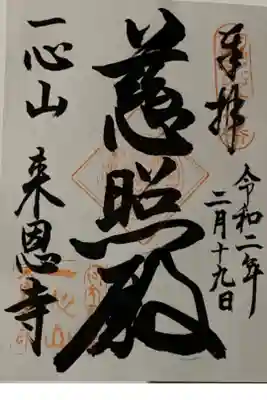 奉拝
令和二年
二月十九日
慈照殿
一心山
来恩寺